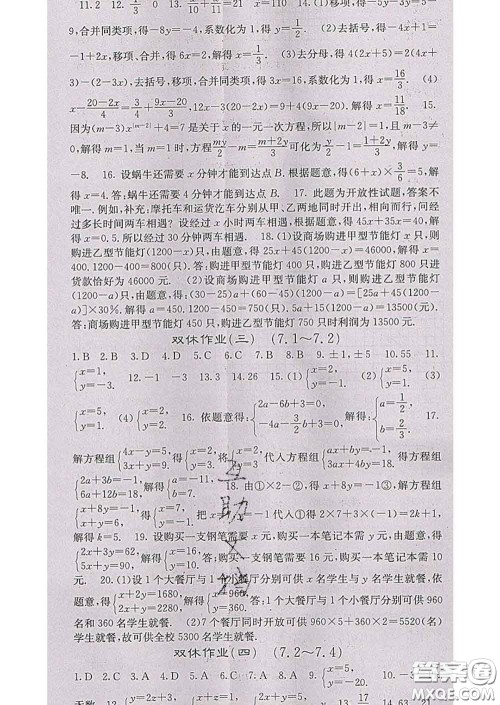 11.2 12.1/3 0 13.
9,合并同类项,得-8y=-4,系数化为1,得y=1/2. (2)去括号,得
-2x+1,移项、合并,得6x=2,解得x=1/3. (3)去分母,得4x=2(4+
3)-(2-3x),去括号,移项,合并同类项,系数化为1,得x=16/3. (4)
x-(20-2x)/4=3/4+(9x-20)/3,12x-3(20-2x)=9+4(9x-20),解得x=11/18. 15.
因为(m-3)x|m-2|+4=7是关于x的一元一次方程,所以|m-2|=1,且m-3≠
0,解得m=1,当m=1时,方程
-8. 16.设蜗牛还需要x分钟才能到达点B.根据题意,得(6+x)×3/6=5,解
得x=4.答:蜗牛还需要4分钟才能到达点B. 17.此题为开放性试题,答案不
唯一.例如,补充:摩托车和运货汽车分别从甲、乙两地同时开出,相向而行,问经
过多长时间两车相遇?设经过x小时两车相遇.根据题意,得45x+35x=40,解
得x=0.5.所以经过30分钟两车相遇. 18.(1)设商场购进甲型节能灯x只,则
购进乙型节能灯(1200-x)只,由题意,得25x+45(1200-x)=46000,解得x=
400.1200-400=800(只).答:购进甲型节能灯400只,购进乙型节能灯800只进
货款恰好为46000元. (2)设商场购进甲型节能灯a只,则购进乙型节能灯
(1200-a)只,由题意,得:(30-25)a+(60-45)(1200-a)=[25a+45(1200-
a)]×30%.解得:a=450.购进乙型节能灯1200-450=750(只).
答:商场购进甲型节能灯450只,购进乙型节能灯750只时利润为13500元.
双休作业(三) (7.1~7.2)
1.B 2.B 3.D 4.D 5.C 6.A 7.B 8.B 9.±1,±5 10.55 11.
{x=1, y=-3. 12.-1 -3 13.3 14.26 15.(1){x=5, y=1. (2){x=1, y=2. (3)
{x=5, y=1. (4){x=1, y=2. 16.依题意得:{2a-6b+3=0, -4a-3/2b+3=0, 解得:{a=1/2, b=2/3. 17.
解方程组{4x-y=5, 3x+y=9. 得{x=2, y=3. 将{x=2, y=3. 代入方程组{ax+by=-1, 3x+4by=18. 得方程组
{2a+3b=-1, 6a+12b=18. 解得{a=-11, b=7. 18.由①×2-②,得:kx+8y=-1③,解方程组
{x+8y=-9, 3x+y=-4. 得{x=-1, y=-1. 把x=-1,y=-1代入①得2×7+3×(-1)=k+4,解
得:k=7. 19.设购买一支钢笔需要x元,购买一本笔记本需y元,由题意,得
{2x+3y=62, 5x+y=90. 解得{x=16, y=10. 答:购买一支钢笔需要16元,购买一本笔记本需10
元. 20.(1)设1个大餐厅与1个小餐厅分别可供x名学生与y名学生就餐,依
题意得{x+2y=1680, 2x+y=2280. 解得{x=960, y=360. 答:1个大餐厅与1个小餐厅分别可供960
名和360名学生就餐. (2)7个餐厅同时开放可供960×5+360×2=5520(名)
学生就餐,故可供全校5300名学生就餐.
双休作业(四) (7.2~7.4)
1.D 2.A 3.C 4.D 5.D
互助文档
答案圈
MXQE.COM